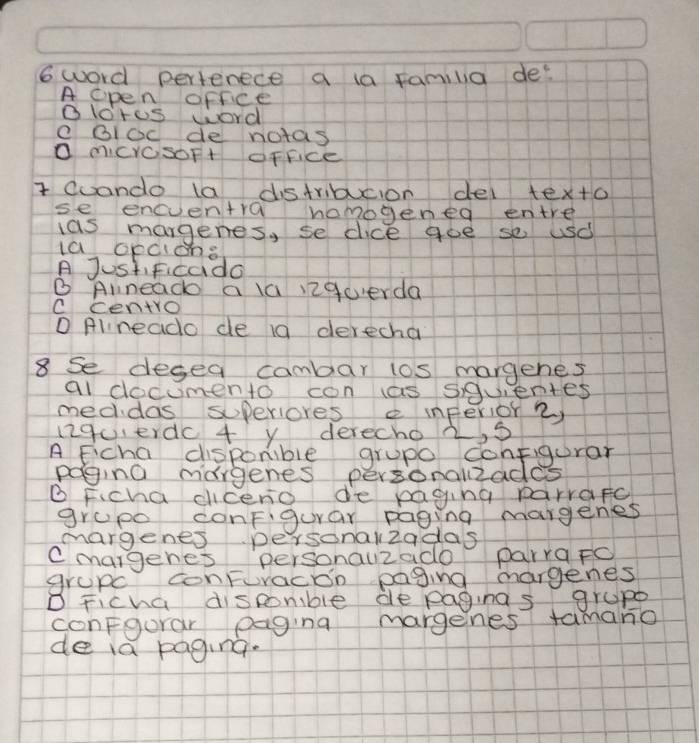 6 word pertenece a la familia de:
A open office
B lotus word
C Bloc de notas
D microsoft office
7 cuando la distribucion del texto
se encuentra homogenea entre
las margenes, se dice que se usó
la opción:
A Justificado
B Alineado a la izquierda
C centro
D Alineado de la derecha
8 se desea cambar los margenes
al documento con las siguientes
medidas superiores e inferior 2,
izquierdo 4 y derecho 2,5
A Ficha disponible grupo configurar
pagina márgenes personalizados
B Ficha diceño de pagina parrafo
grupo configurar pagina margenes
margenes personalizadas
C margenes personalizado parrafo
grupo confuración pagina margenes
D Ficha disponible de paginas grupo
confgurar pagina margenes tamaño
de la pagina.